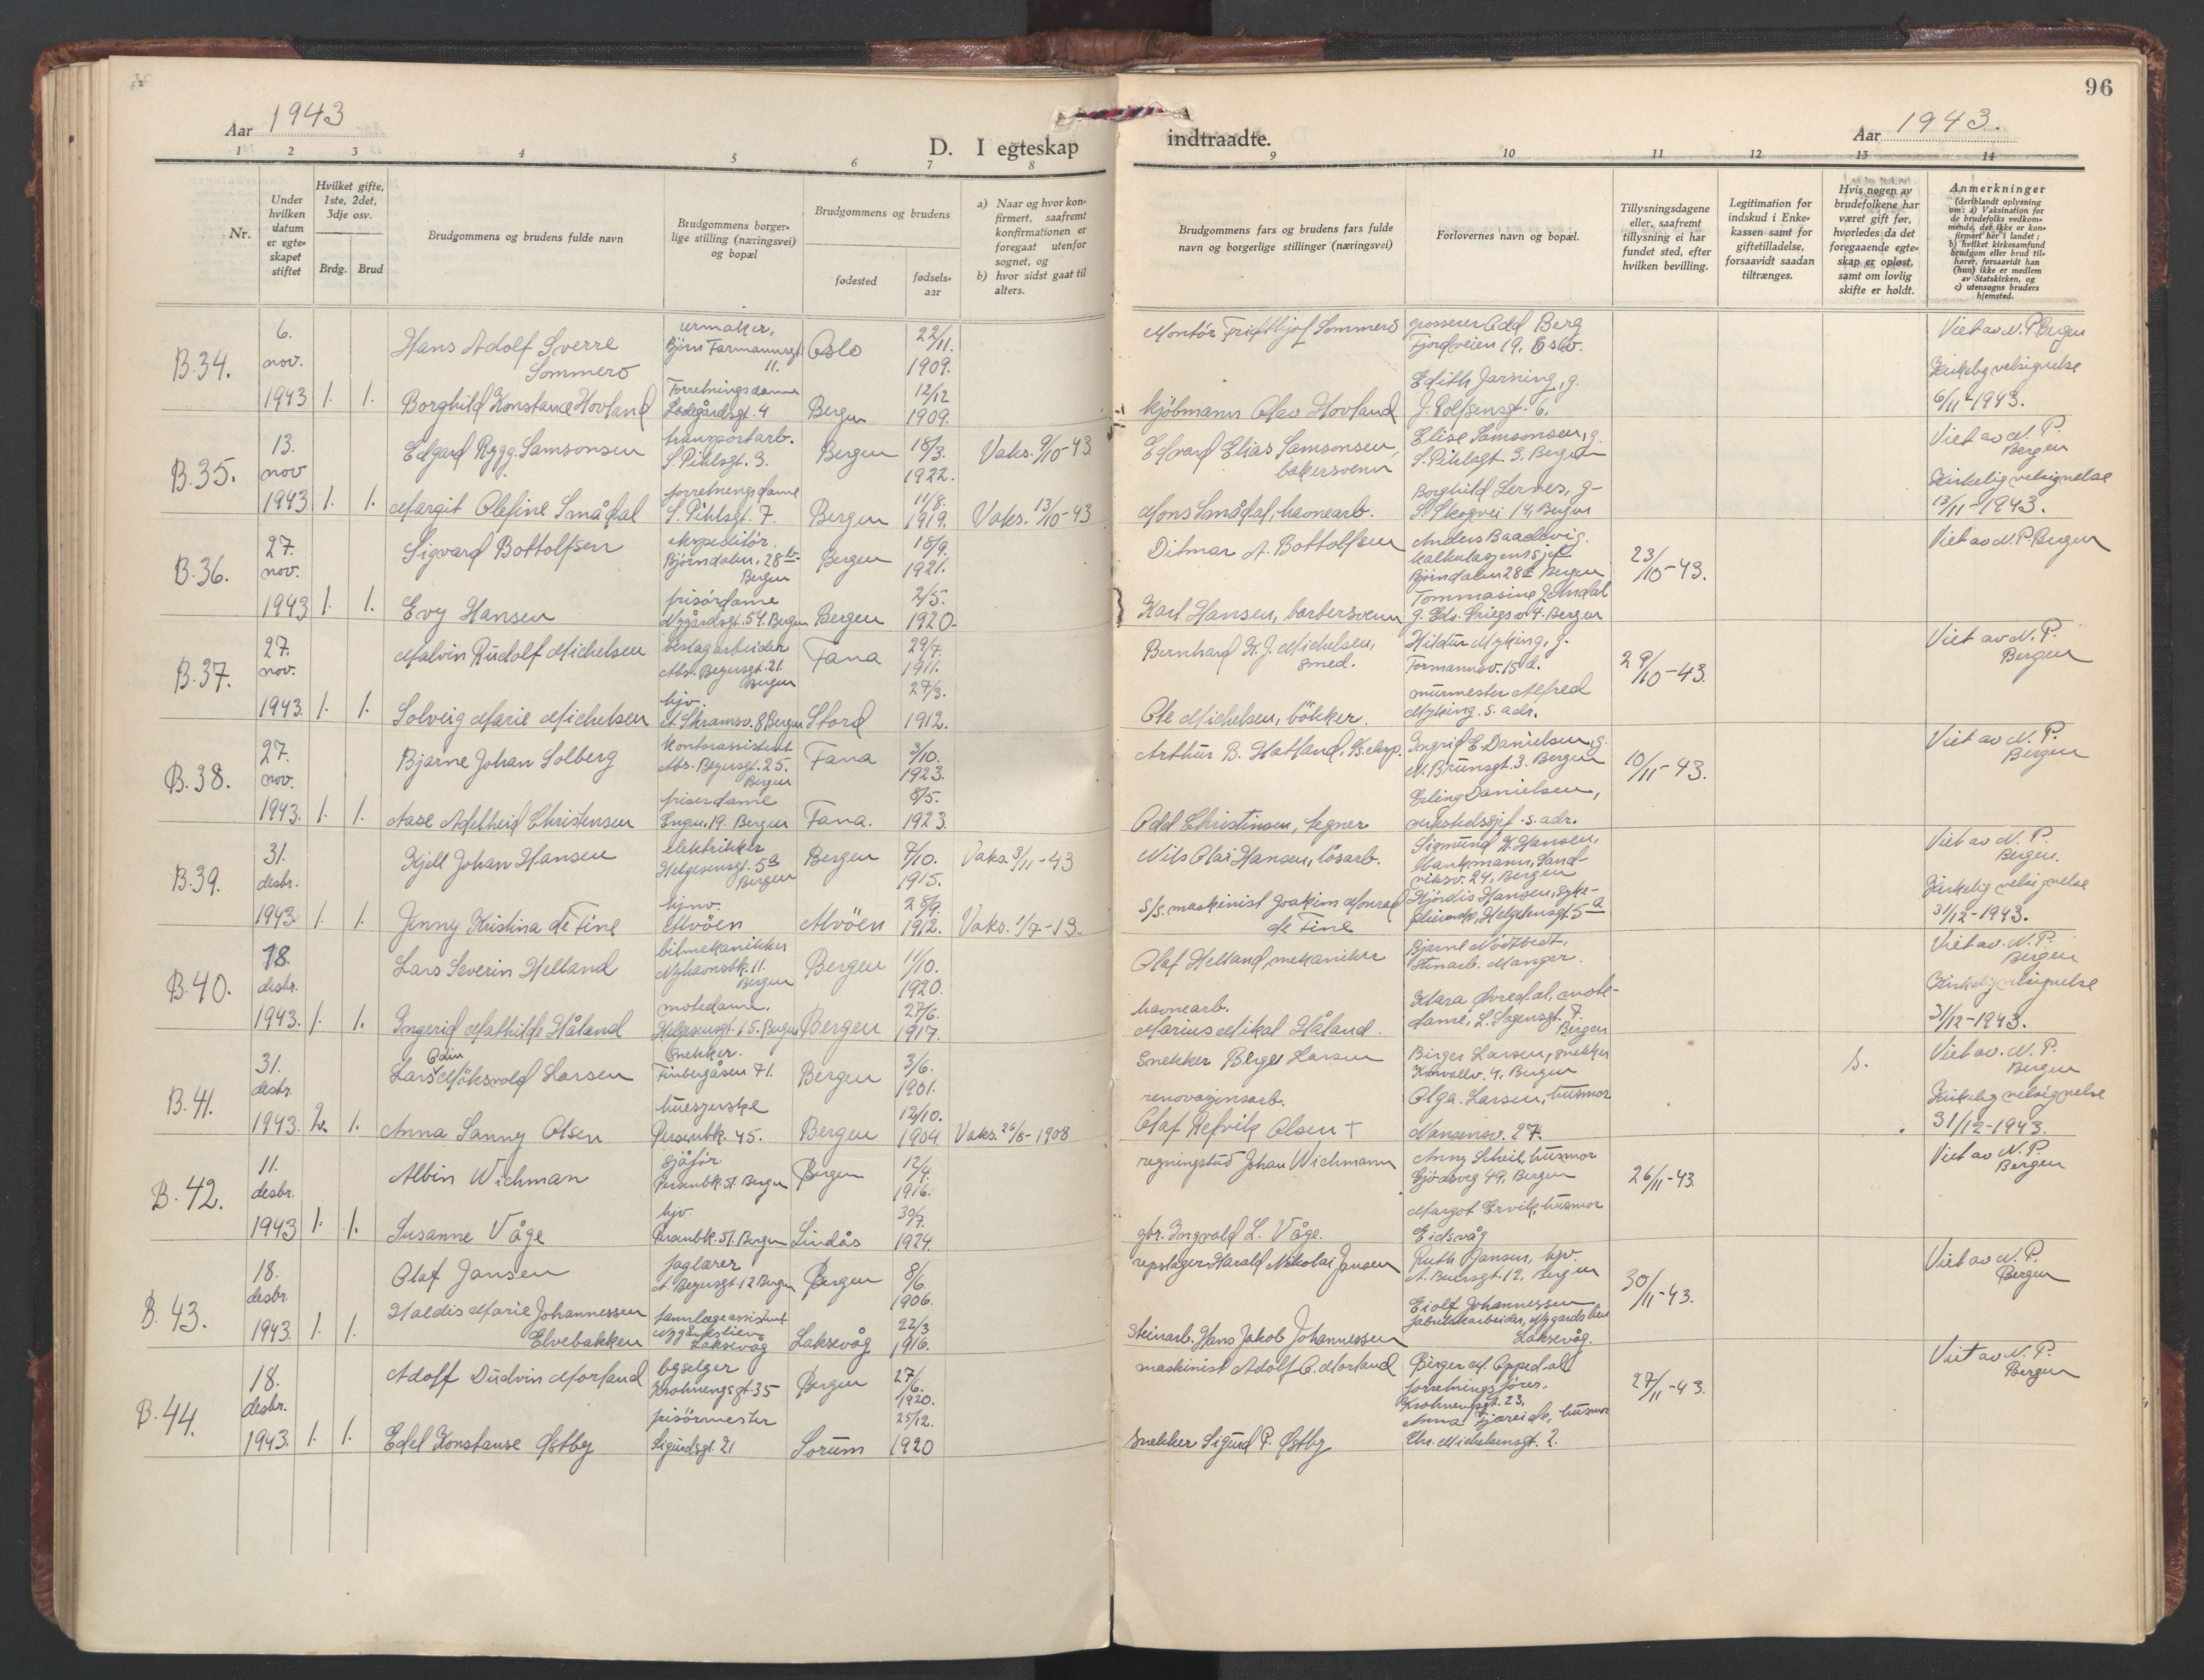 Aar 1943
D. I egteskap
indtraadte.
Aar 1943.
96
1 2 3 4 5 6 7 8
9 10 11 12 13 14
Nr.
Under hvilken datum er egteskapet stiftet
Hvilket gifte, 1ste, 2det, 3dje osv.
Brdg. Brud
Brudgommens og brudens fulde navn
Brudgommens borgerlige stilling (næringsvei) og bopæl
Brudgommens og brudens
fødested
fødselsaar
a) Naar og hvor konfirmert, saafremt konfirmationen er foregaat utenfor sognet, og
b) hvor sidst gaat til alters.
Brudgommens fars og brudens fars fulde navn og borgerlige stillinger (næringsvei)
Forlovernes navn og bopæl.
Tillysningsdagene eller, saafremt tillysning ei har fundet sted, efter hvilken bevilling.
Legitimation for indskud i Enkekassen samt for giftetilladelse, forsaavidt saadan tiltrænges.
Hvis nogen av brudefolkene har været gift før, hvorledes da det foregaaende egteskap er opløst, samt om lovlig skifte er holdt.
Anmerkninger (deriblandt oplysning om: a) Vaksination for de brudefolks vedkommende, der ikke er konfirmert her i landet; b) hvilket kirkesamfund brudgom eller brud tilhører, forsaavidt han (hun) ikke er medlem av Statskirken, og c) utensogns bruders hjemsted.
B.34. 6. nov. 1943 1. 1.
Hans Adolf Sverre Sommero
urmaker, Bjørn Farmannsgt. 11.
Oslo 22/11. 1909.
Montör Fridthjof Sommero
grosserer Odd Berg Fjordveien 19, Oslo.
Viet av N.P. Bergen
Borghild Konstance Hovland
Forretningsdame Ladegårdsgt. 4
Bergen 12/12 1909.
kjöbmann Olav Hovland
Edith Jarning, g. J. Rolfsensgt. 6.
Kirkelig velsignelse 6/11-1943.
B.35. 13. nov 1943 1. 1.
Edgard Rygg Samsonsen
transportarb. S. Pihlsgt. 3.
Bergen 18/3. 1922.
Vaks. 9/10-43
Edvard Elias Samsonsen, bakersvenn
Elise Samsonsen, g. S. Pihlsgt. 3. Bergen
Viet av N.P. Bergen
Margit Olefine Smådal
forretningsdame S. Pihlsgt. 7.
Bergen 11/8. 1919.
Vaks. 13/10-43
Mons Smådal, havnearb.
Borghild Lernes, g- S. Skogvei 14, Bergen
Kirkelig velsignelse 13/11-1943.
B.36. 27. nov. 1943 1. 1.
Sigvard Bottolfsen
ekspeditör. Björndalen, 28 b Bergen
Bergen 18/9. 1921.
Ditmar A. Bottolfsen
Anders Baadsvig. kalkulasjonssjef Björndalen 28 Bergen
23/10-43.
Viet av N.P. Bergen
Evy Hansen
frisördame Nygårdsgt. 54. Bergen
Bergen 2/5. 1920.
Karl Hansen, barbersvenn
Tommasine J. Andal g. Edv. Griegsv. 4. Bergen
B.37. 27. nov. 1943. 1. 1.
Malvin Rudolf Michelsen
beslagarbeider Abs. Beyersgt. 21. Bergen
Fana 29/7. 1911.
Bernhard K.J. Michelsen, smed.
Hildur Myking, g. Formannsv. 15 d.
29/10-43.
Viet av N.P. Bergen
Solveig Marie Michelsen
hjv. A. Skramsv. 8 Bergen
Stord 29/3. 1912.
Ole Michelsen, bökker.
murmester Alfred Myking. s. adr.
B.38. 27. nov. 1943. 1. 1.
Bjarne Johan Solberg
kontorassistent Abs. Beyersgt. 25. Bergen
Fana 3/10. 1923.
Arthur B. Hatland,
Ingrid E. Danielsen, g. N. Brunsgt. 3. Bergen
10/11-43.
Viet av N.P. Bergen
Aase Adelheid Christensen
friserdame Engen, 19. Bergen
Fana. 8/5. 1923.
Odd Christinsen, tegner
Erling Danielsen, verkstedssjef. s. adr.
B.39. 31. desbr. 1943. 1. 1.
Kjell Johan Hansen
elektriker Helgesensgt. 5a Bergen
Bergen 7/10. 1915.
Vaks. 3/11-43
Nils Olai Hansen, lösarb.
Sigmund K. Hansen, Sandviksv. 24, Bergen
Viet av N.P. Bergen.
Jenny Kristina de Fine
hjv. Alvöen
Alvöen 28/9. 1912.
Vaks. 1/7-13.
S/s. maskinist Joakim Monrad de Fine
Hjördis Hansen, Helgesensgt 5a
Kirkelig velsignelse 31/12-1943.
B.40. 18. desbr. 1943. 1. 1.
Lars Severin Helland
bilmekanikker Nyhavnsbk. 11. Bergen
Bergen 11/10. 1920.
Olaf Helland, mekaniker
Bjarne Nödtvedt, Stenarb. Manger.
Viet av. N.P. Bergen
Ingerid Mathilde Håland
motedame. Helgesensgt. 15. Bergen
Bergen 27/6. 1917.
havnearb. Marius Mikal Håland.
Klara Övredal, motedame, L. Sagensgt. 7. Bergen
Kirkelig velsignelse 31/12-1943.
B.41. 31. desbr. 1943. 2. 1.
Lars Odin Möksvold Larsen
Snekker. Finbergåsen 71.
Bergen 3/6. 1901.
Snekker Birger Larsen
Birger Larsen, snekker 4, Bergen
s.
Viet av. N.P. Bergen
Anna Sanny Olsen
hueszerske Persenbk. 45.
Bergen 12/10. 1904
Vaks. 26/5-1908
renovasjonsarb. Olaf Refvik Olsen +
Olga Larsen, husmor Nansensv. 27.
Kirkelig velsignelse 31/12-1943.
B.42. 11. desbr. 1943 1. 1.
Albin Wichman
sjåför Persenbk. 51. Bergen
Bergen 12/4. 1916.
regningsbud Johan Wichmann
Anny Scheil, husmor Gjösveg 49, Bergen
26/11-43.
Viet av N.P. Bergen
Susanne Våge
hjv. Persenbk. 51. Bergen
Lindås 30/7. 1924.
gbr. Ingvald L. Våge.
Margot Ervik, husmor Eidsvåg
B.43. 18. desbr 1943. 1. 1.
Olaf Jansen
faglærer A. Beyersgt 12 Bergen
Bergen 8/6. 1906.
repslager Harald Nikolai Jansen
Ruth Jansen, hjv. A. Beyersgt. 12, Bergen
30/11-43.
Viet av N.P. Bergen
Haldis Marie Johannessen Elvebakken
tannlægeassistent Nygårdslien Laksevåg
Laksevåg 22/3 1916.
Steinarb. Hans Jakob Johannessen
Eiolf Johannessen fabrikkarbeider, Nygårdslien Laksevåg.
B.44. 18. desbr. 1943. 1. 1.
Adolf Dudvin Morland
byselger Krohnengsgt. 35
Bergen 27/6. 1920.
maskinist Adolf O. Morland
Birger M. Oppedal forretningsförer, Krohnengsgt. 23,
27/11-43.
Viet av N.P. Bergen
Edel Konstanse Østby
frisörmester Sigurdsgt. 21
Sorum 25/12. 1920
Snekker Sigurd P. Østby
Anna Fjæreide, husmor Chr. Michelsensgt. 2.